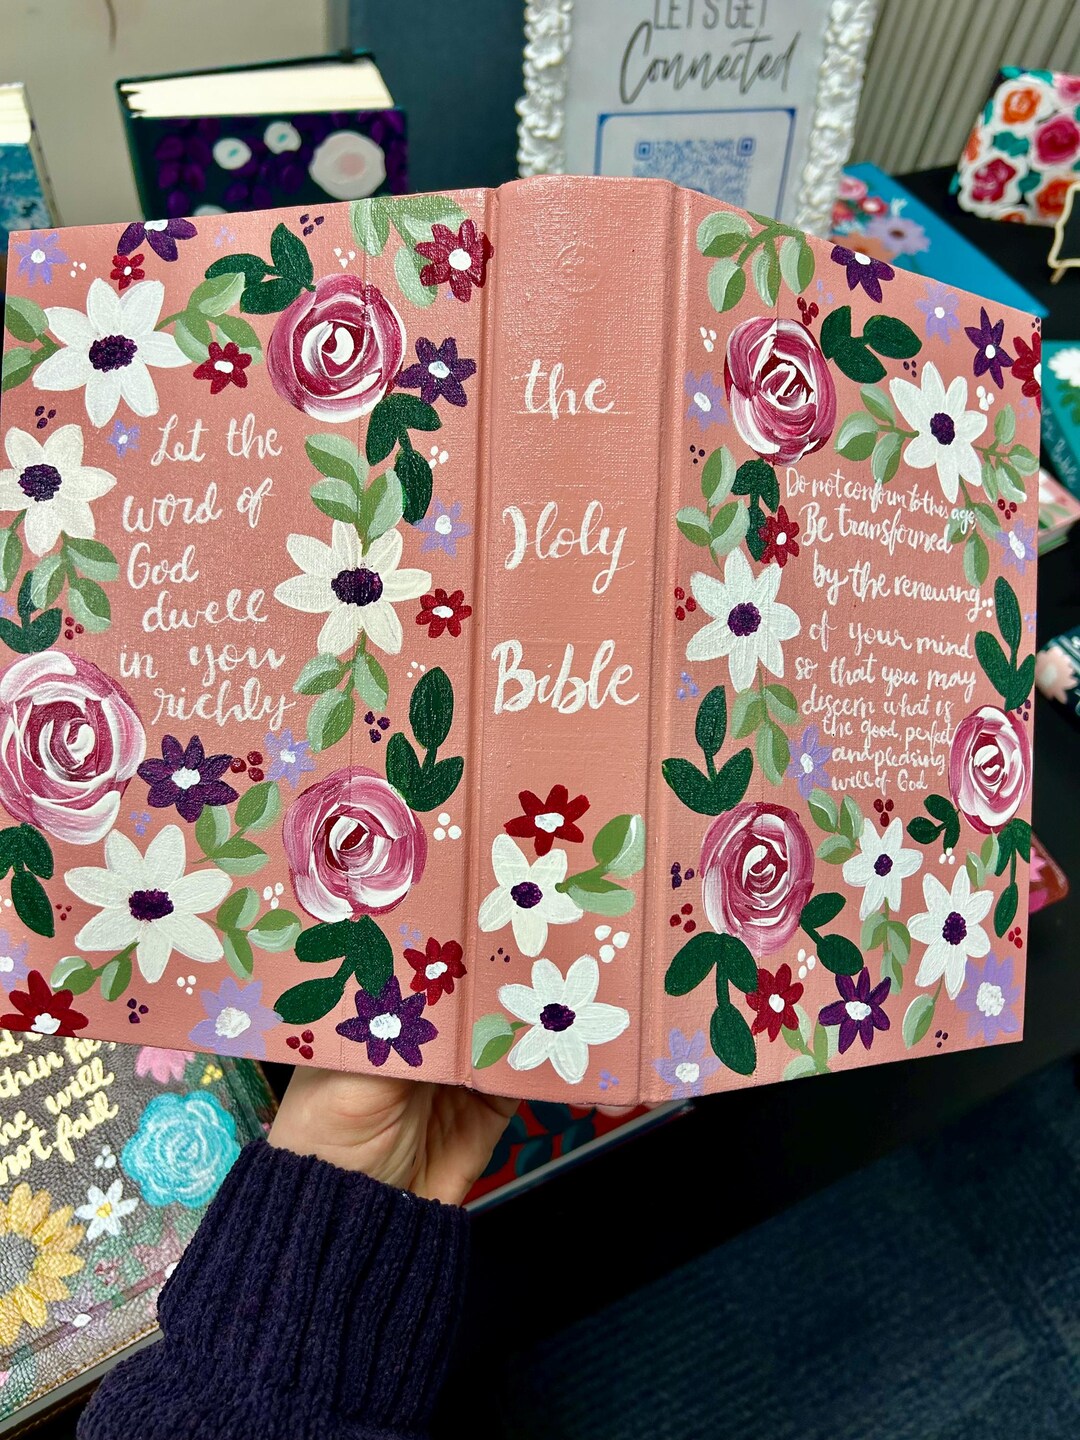 LET'S GET
Connected
Let the
word of
God
dwell
in you
richly
the
Holy
Bible
Do not conform to this age,
Be transformed
by the renewing
of your mind
so that you may
discern what is
the good, perfect
and pleasing
will of God
thin h
he will
not fail